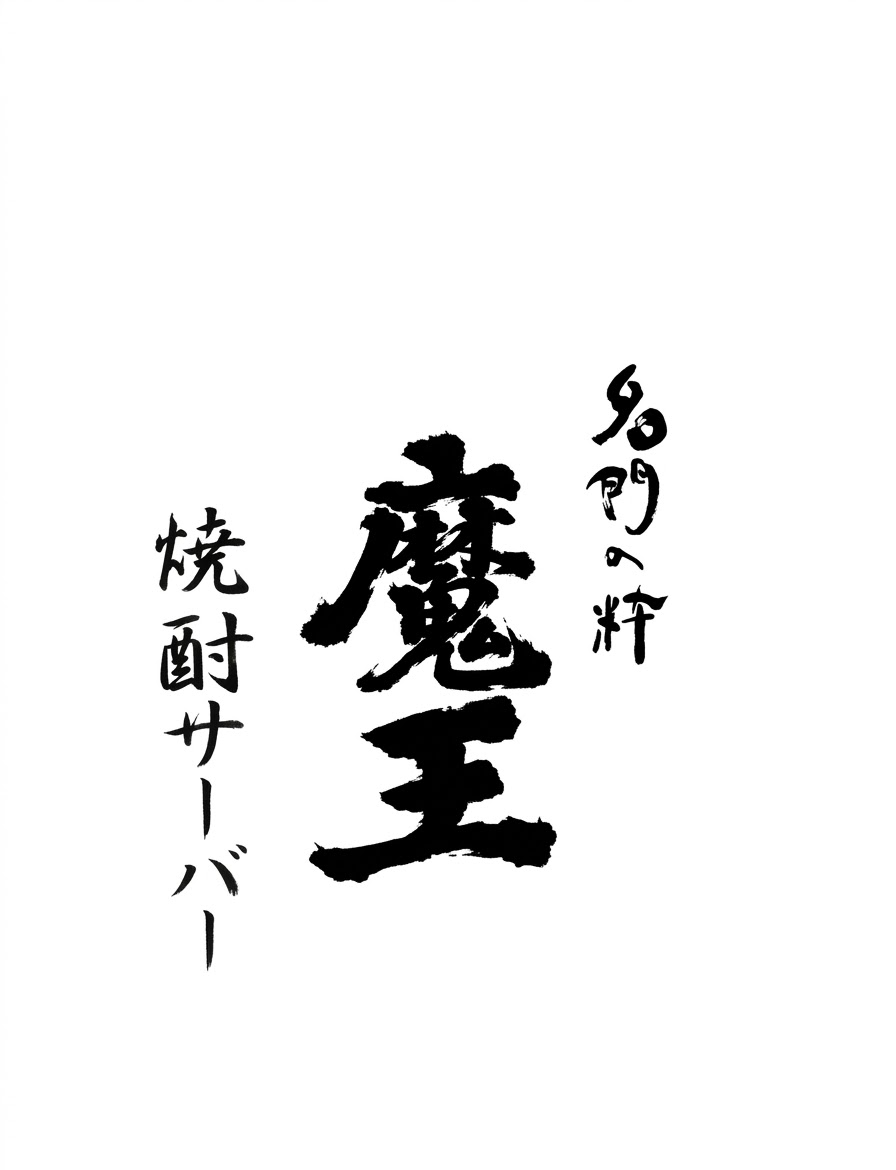 名門の粋
魔王
焼酎サーバー